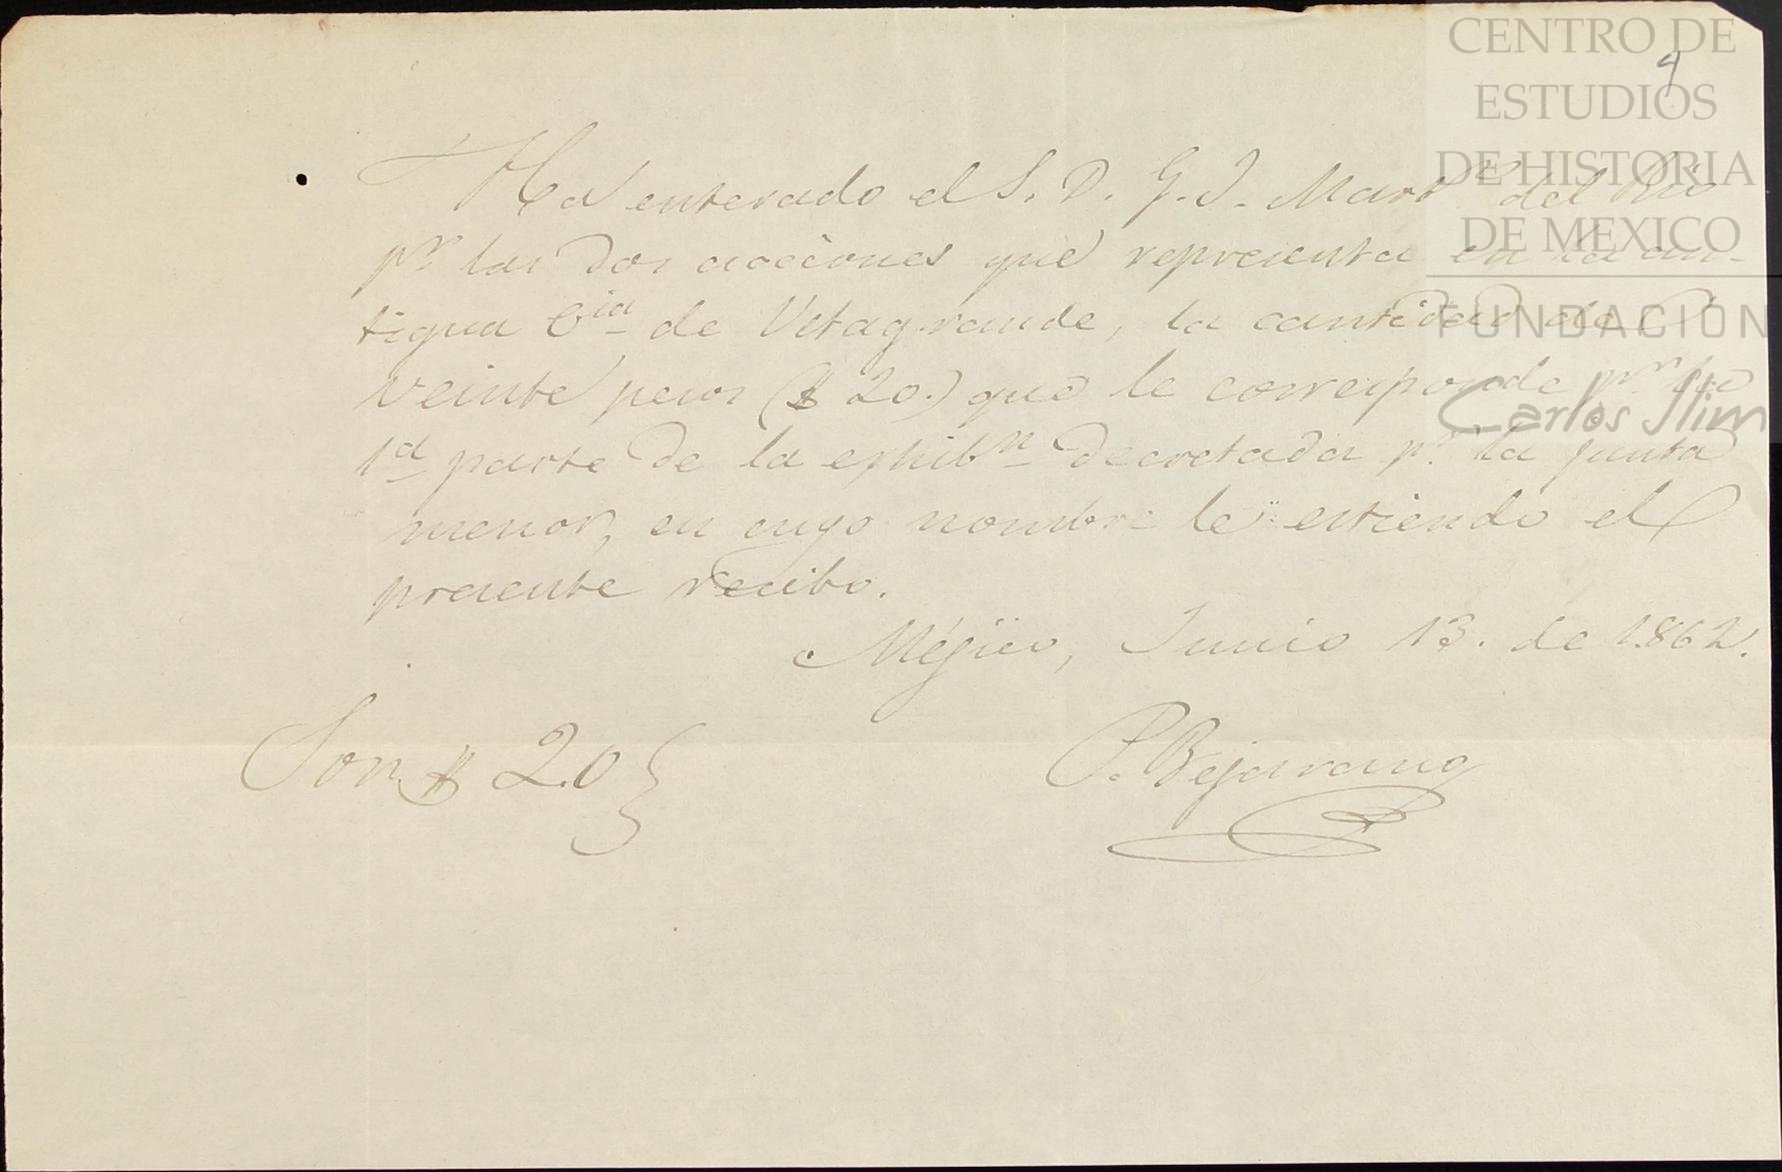 4
Ha enterado el S. D. G. J. Mart.z del Rio
pr. las dos acciones que representa en la an-
tigua Cia de Vetagrande, la cantidad de
veinte pesos ($ 20.) que le corresponde pr. la
1a parte de la exhibn decretada pr. la junta
menor, en cuyo nombre le estiendo el
presente recibo.
Méjico, Junio 13. de 1862.
Son $ 20
P. Bejarano
CENTRO DE
ESTUDIOS
DE HISTORIA
DE MEXICO
FUNDACIÓN
Carlos Slim